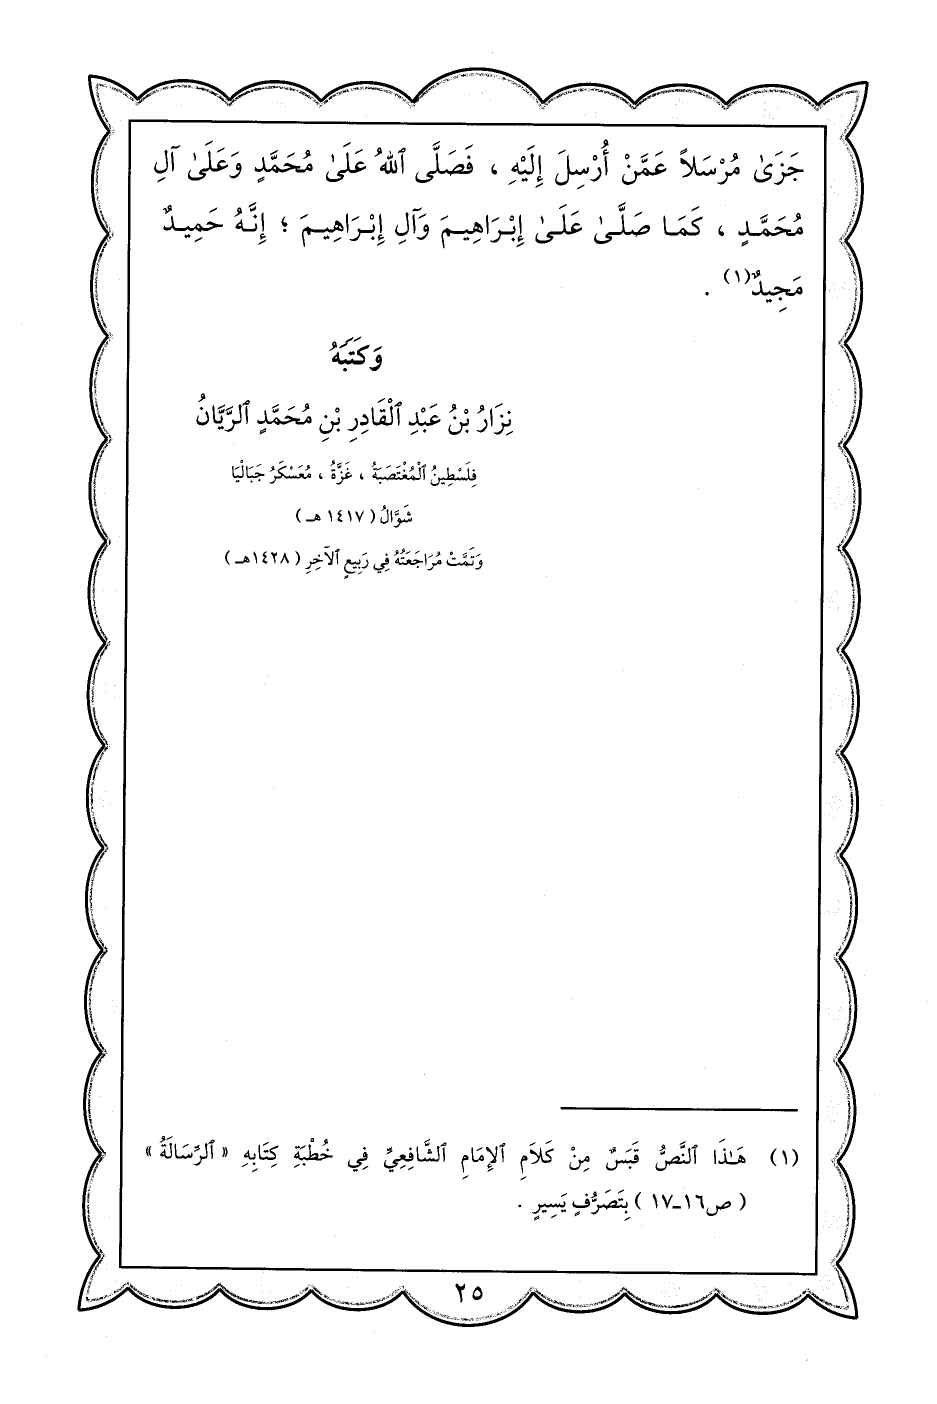 جَزَىٰ مُرْسَلاً عَمَّنْ أُرْسِلَ إِلَيْهِ ، فَصَلَّى ٱللهُ عَلَىٰ مُحَمَّدٍ وَعَلَىٰ آلِ
مُحَمَّدٍ ، كَمَا صَلَّىٰ عَلَىٰ إِبْرَاهِيمَ وَآلِ إِبْرَاهِيمَ ؛ إِنَّهُ حَمِيدٌ
مَجِيدٌ(١) .
وَكَتَبَهُ
نِزَارُ بْنُ عَبْدِ ٱلْقَادِرِ بْنِ مُحَمَّدٍ ٱلرَّيَّانُ
فِلَسْطِينُ ٱلْمُغْتَصَبَةُ ، غَزَّةُ ، مُعَسْكَرُ جَبَالْيَا
شَوَّالُ ( ١٤١٧ هـ )
وَتَمَّتْ مُرَاجَعَتُهُ فِي رَبِيعٍ ٱلآخِرِ ( ١٤٢٨هـ )
(١) هَـٰذَا ٱلنَّصُّ قَبَسٌ مِنْ كَلاَمِ ٱلإِمَامِ ٱلشَّافِعِيِّ فِي خُطْبَةِ كِتَابِهِ « ٱلرِّسَالَةُ »
( ص١٦ـ١٧ ) بِتَصَرُّفٍ يَسِيرٍ .
٢٥